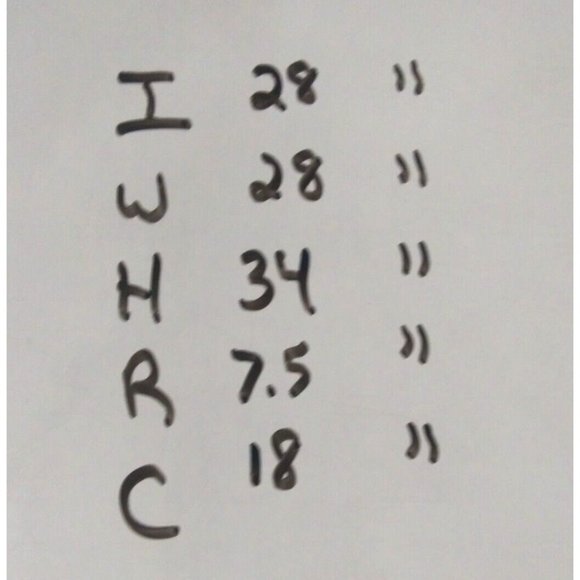 I 28 "
W 28 "
H 34 "
R 7.5 "
C 18 "